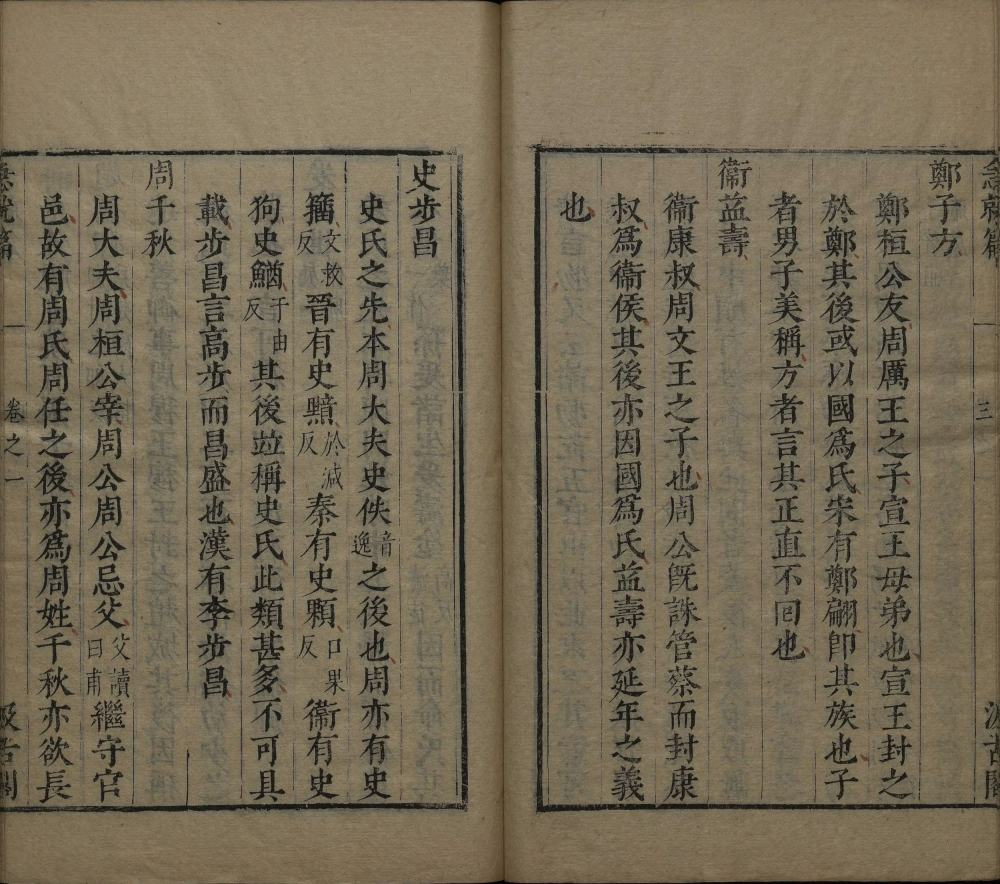 急就篇 三 汲古閣
鄭子方
鄭桓公友周厲王之子宣王母弟也宣王封之
於鄭其後或以國爲氏宋有鄭翩卽其族也子
者男子美稱方者言其正直不囘也
衞益壽
衞康叔周文王之子也周公旣誅管蔡而封康
叔爲衞侯其後亦因國爲氏益壽亦延年之義
也
史步昌
史氏之先本周大夫史佚音逸之後也周亦有史
籀文救反晉有史黶於減反秦有史顆口果反衞有史
狗史鰌于由反其後竝稱史氏此類甚多不可具
載步昌言高步而昌盛也漢有李步昌
周千秋
周大夫周桓公宰周公周公忌父父讀曰甫繼守官
邑故有周氏周任之後亦爲周姓千秋亦欲長
急就篇 卷之一 汲古閣